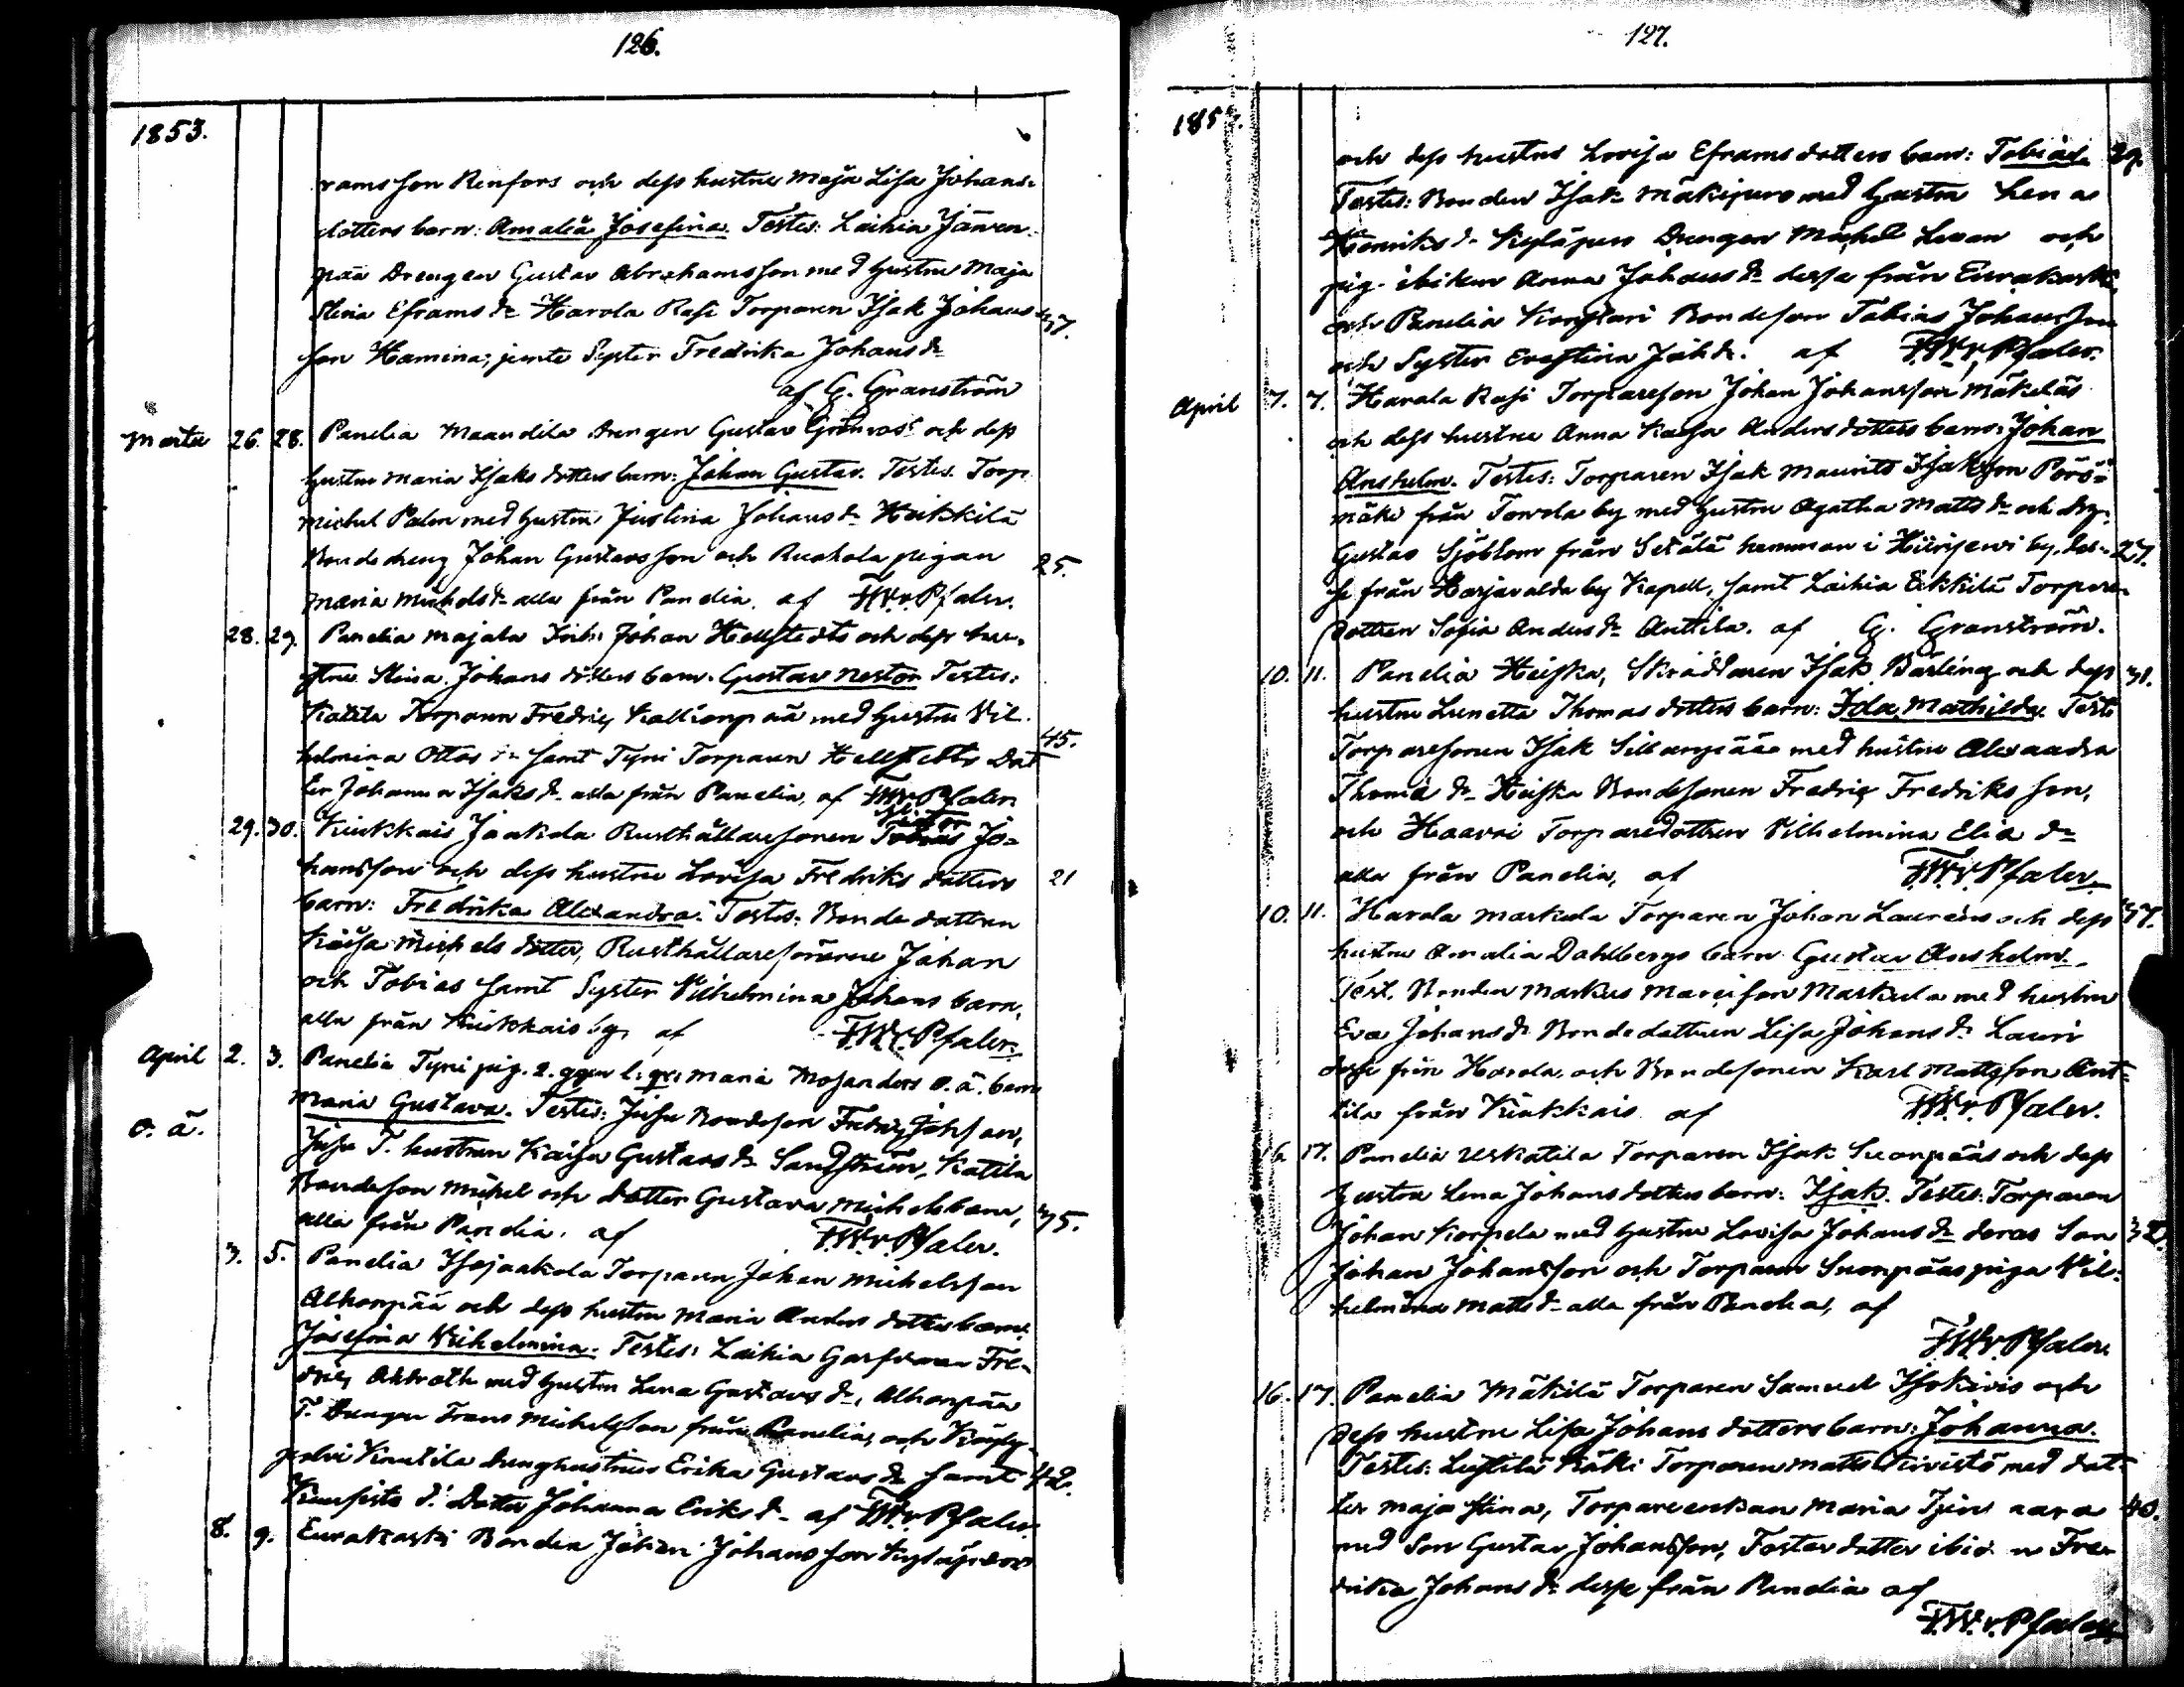 126.
1853.
ramsson Renfors och dess hustru Maja Lisa Johans
dotters barn: Amalia Josefina. Testes: Laihia Järven-
pää Drengen Gustav Abrahamsson med hustru Maja
Stina Eframs dr Harola Rasi Torparen Isak Johans 37.
son Hamina, jemte Syster Fredrika Johans dr
af G. Granström
Martii 26. 28. Panelia Maandila Drengen Gustav Grönroos och dess
hustru Maria Isaks dotters barn: Johan Gustav. Testes. Torp
Michel Palen med hustru Justina Johans dr Heikkilä
Bonde dreng Johan Gustavsson och Ruohola pigan 25.
Maria Michelsdr alla från Panelia. af FW.v.Pfaler.
28. 29. Panelia Majala Inh: Johan Hellstedts och dess hu-
stru Stina Johans dotters barn. Gustav Nestor Testes:
Katila Torparen Fredric Kallionpää med hustru Vil-
helmina Ottos dr samt Tyni Torparen Hellstedts Dot 45.
ter Johanna Isaks dr alla från Panelia, af FW.v.Pfaler
29. 30. Kiukkais Jaakola Rusthållaresonen Tobias Jo-
hansson och dess hustru Lovisa Fredriks dotters 21
barn: Fredrika Alexandra. Testes: Bonde dottren
Kaisa Michels dotter, Rusthållaresönerne Johan
och Tobias samt Syster Vilhelmina Johans barn,
alla från Kiukkais by af FW.v.Pfaler.
April 2. 3. Panelia Tyni pig. 2. ggr l. gr. Maria Mosanders o. ä. barn
o. ä. Maria Gustava. Testes: Juha Bondeson Fredric Johsson,
Juha T. hustrun Kaisa Gustavs dr Sandström, Katila
Bondeson Michel och dotter Gustava Michels barn, 35.
alla från Panelia. af FW.v.Pfaler.
3. 5. Panelia Isojaakola Torparen Johan Michelsson
Alhonpää och dess hustru Maria Anders dotters barn:
Josefina Vilhelmina. Testes: Laihia Garfvaren Fre-
dric Ahlroth med hustru Lena Gustavs dr, Alhonpää
T. Drengen Frans Michelsson från Panelia, och Köyly-
polvi Knutila drenghustrun Erika Gustavs dr samt 42.
dr Dotter Johanna Eriks dr af FW.v.Pfaler.
8. 9. Eurakoski Bonden Johan Johansson Kyläjuon
127.
185
och dess hustru Lovisa Eframs dotters barn: Tobias 29.
Testes: Bonden Isak Mäkipuro med hustru Lena
Henriks dr Drengen Michel Levan och
pig. ibidem Anna Johans dr dessa från Eurakoski
och Panelia Bondeson Tobias Johansson
och Syster Ernstina Joh dr. af FW.v.Pfaler.
April 7. 7. Harola Rasi Torpareson Johan Johansson Mäkeläs
och dess hustru Anna Kaisa Anders dotters barn: Johan
Anshelm. Testes: Torparen Isak Maurits Isaksson Pörö-
mäki från Torvola by med hustru Agatha Matts dr och drg.
Gustav Sjöblom från Setälä hemman i Hiirijervi by, des- 27.
se från Harjavalda Kapell, samt Laihia Eikkilä Torpare
dottren Sofia Anders dr Anttila. af G. Granström.
10. 11. Panelia Heiska, Skräddaren Isak Bärling och dess 31.
hustru Lunetta Thomas dotters barn: Ida Mathilda. Test
Torparesonen Isak Sillanpää med hustru Alexandra
Thoma dr Heiska Bondesonen Fredric Fredriksson,
och Haavri Torparedottren Vilhelmina Elia dr
alla från Panelia, af FW.v.Pfaler.
10. 11. Harola Markula Torparen Johan Lauréns och dess 37.
hustru Amalia Dahlbergs barn Gustav Anshelm.
Test. Bonden Markus Marcisson Markula med hustru
Eva Johans dr Bondedottren Lisa Johans dr Lauri
desse från Harola, och Bondesonen Karl Mattsson Ant-
tila från Kiukkais af FW.v.Pfaler.
16 17. Panelia Uskatila Torparen Isak Suonpääs och dess
hustru Lena Johans dotters barn: Isak. Testes: Torparen
Johan Korpela med hustru Lovisa Johans dr deras Son 32.
Johan Johansson och Torparen Suonpääs piga Vil-
helmina Matts dr alla från Panelia, af
FW.v.Pfaler.
16. 17. Panelia Mäkilä Torparen Samuel Isokivis och
dess hustru Lisa Johans dotters barn: Johanna.
Testes: Torparen Matts Kivistö med dot-
ter Maja Stina, Torpareenkan Maria 40.
med Son Gustav Johansson, Foster dotter ibid-n Fre-
drika Johans dr desse från Panelia af
FW.v.Pfaler.